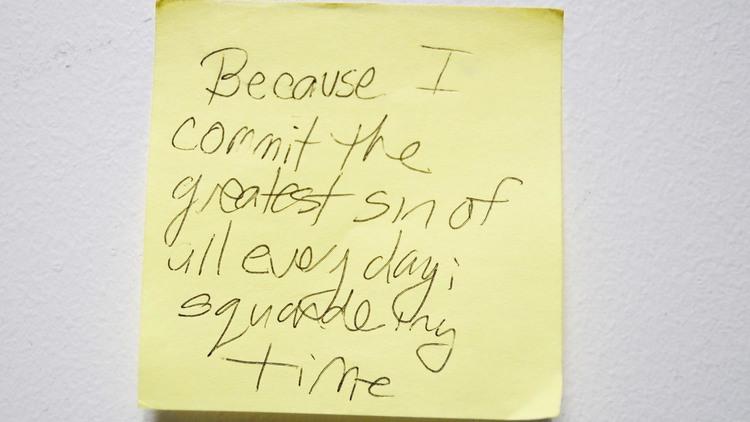 Because I
commit the
greatest sin of
all every day;
squande my
time